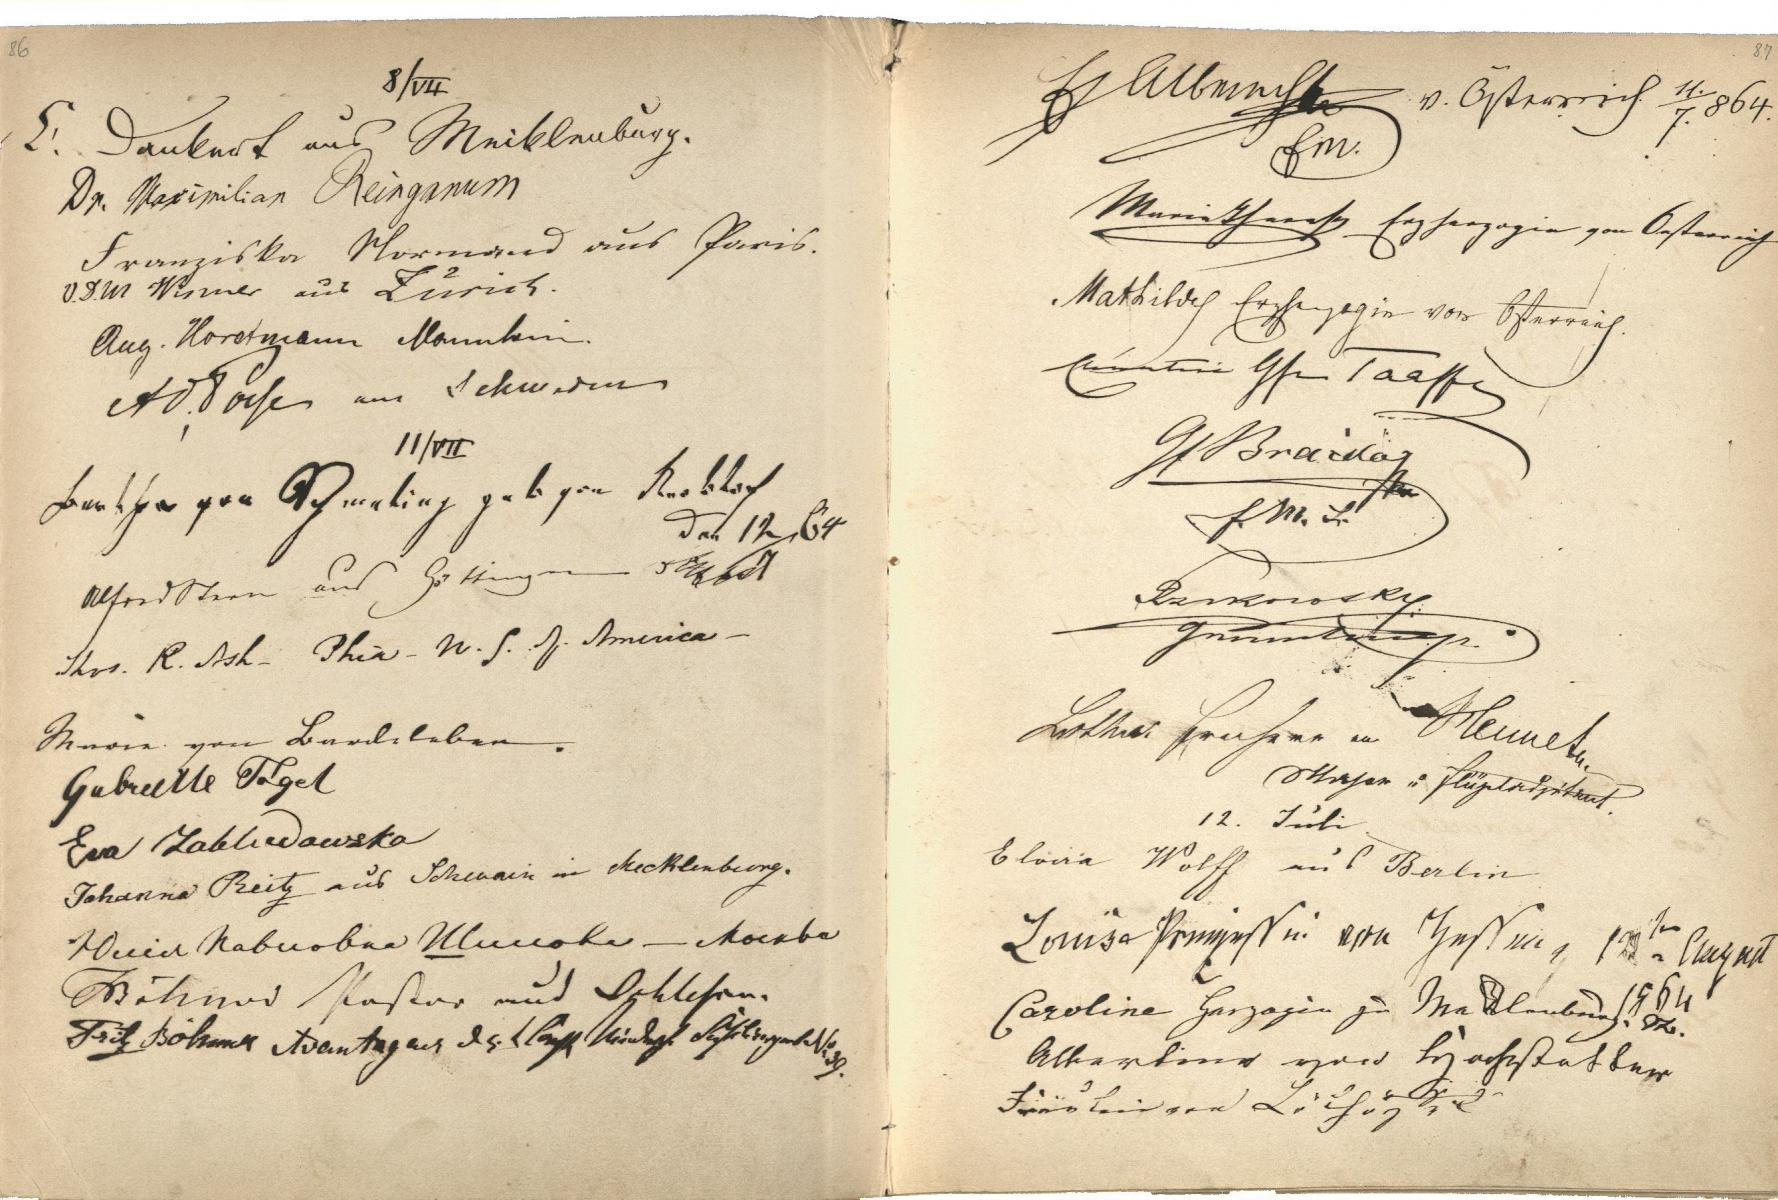 86
8/VII
L. Dankert aus Mecklenburg.
Dr. Maximilian Reinganum
Franziska Normand aus Paris.
V.D.M Wismer aus Zürich.
Aug. Horstmann Mannheim.
aus Schwerin
11/VII
von Schmeling geb von
den 12 64
Alfred Stern aus Göttingen
Thos. R. Ash - Phia - U. S. of America -
Marie von Bardeleben.
Gabrielle Vogel
Eva Zabludowska
Johanna Reitz aus Schwaan in Mecklenburg.
Юлия Павловна Шилова — Москва
Böhmer Pastor aus Schlesien.
Fritz Böhmer Avantageur No 39.
87
EH Albrecht v. Österreich 11./7. 864.
FM.
Marie Theresa Erzherzogin von Oesterreich
Mathilde Erzherzogin von Österreich.
Gfn Taaffe
Gf Braida
F. M. L.
Lothar Freiherr v
Major u Flügeladjutant.
12. Juli
Elvira Wolff aus Berlin
Louise Prinzessin von Hessen, August
Caroline Herzogin zu Mecklenburg. 1864
Albertine von Hochstetter
Fräulein von